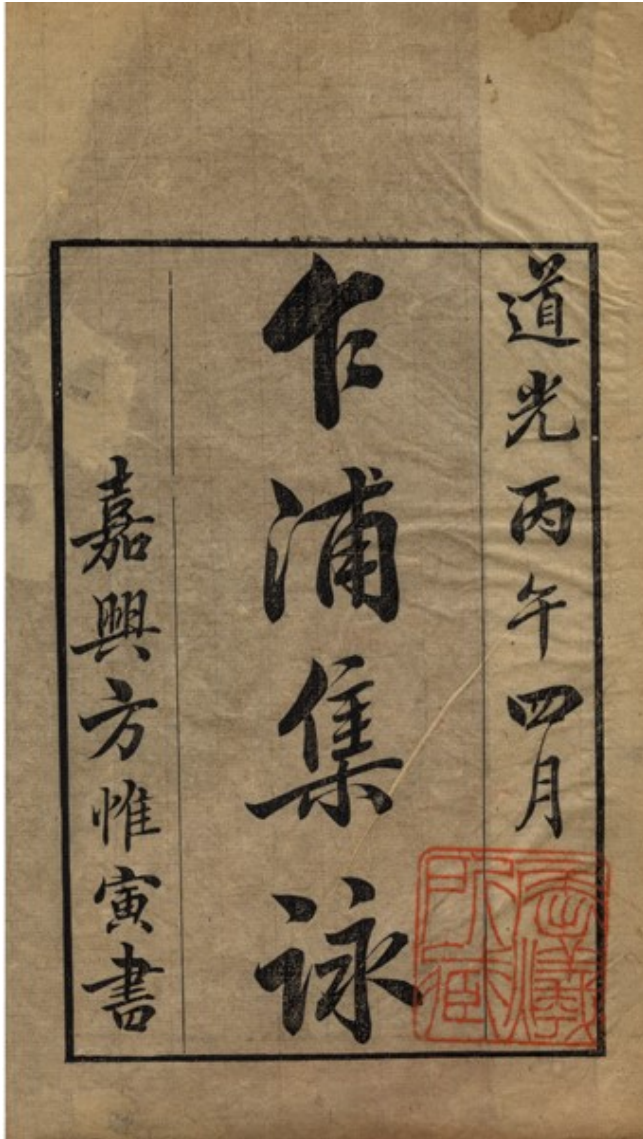 道光丙午四月
乍浦集詠
嘉興方惟寅書